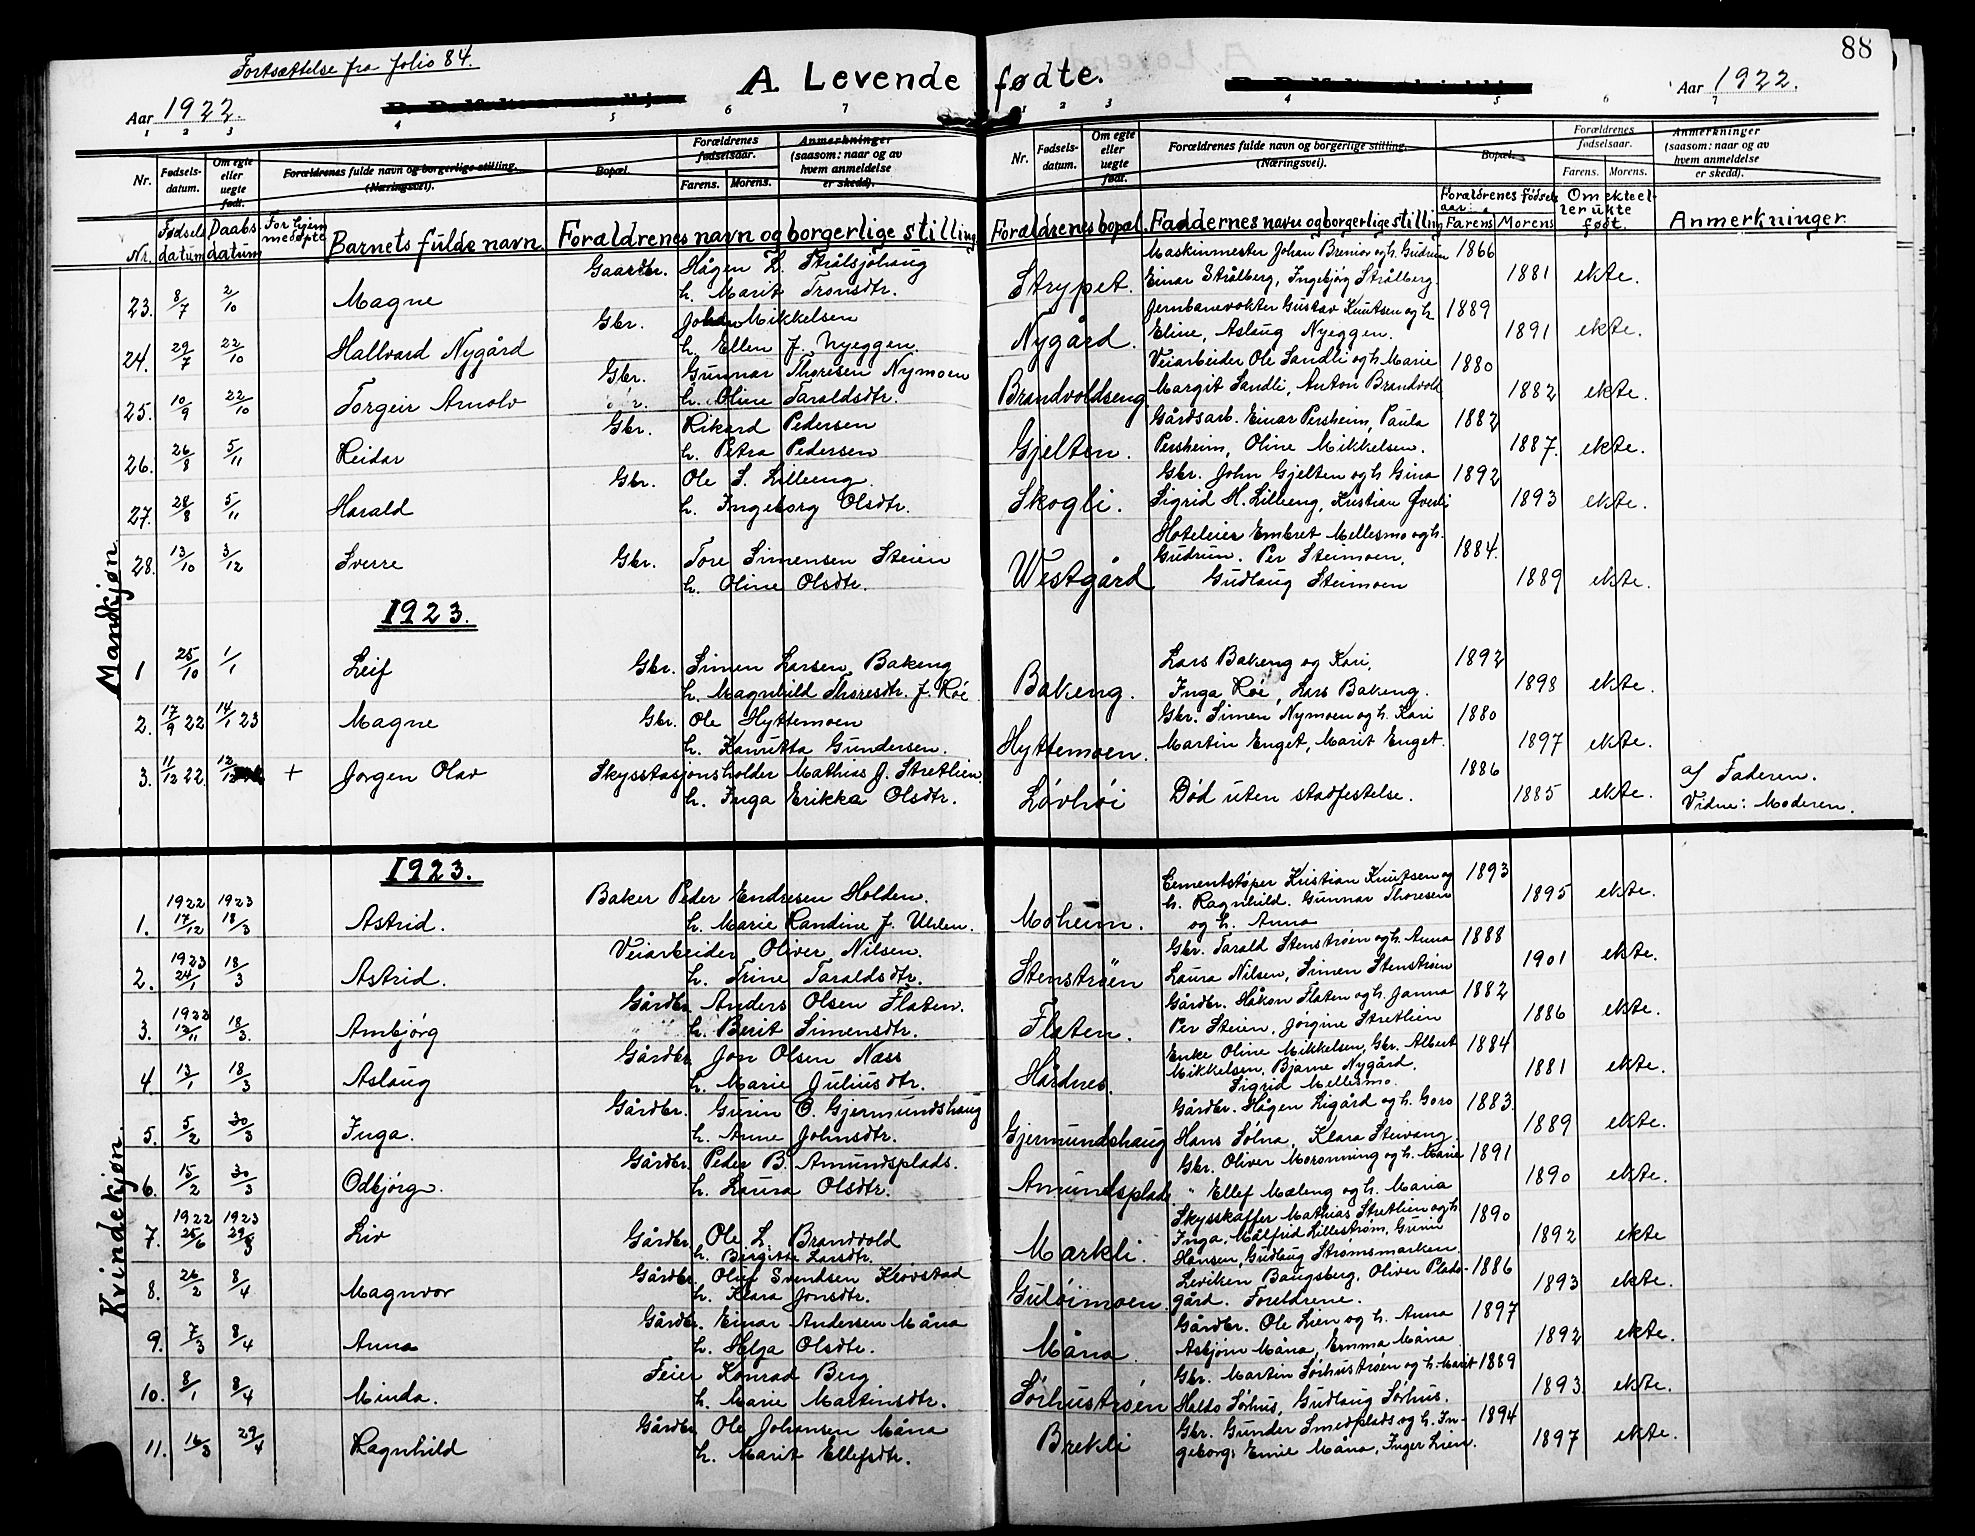 Fortsættelse fra folio 84.
88
A Levende fødte.
Aar 1922.
Aar 1922.
1 2 3 4 5 6 7
1 2 3 4 5 6 7
Nr. Fødsels-datum. Om egte eller uegte født. Forældrenes fulde navn og borgerlige stilling. (Næringsvei). Bopæl. Forældrenes fødselsaar. Farens. Morens. Anmerkninger (saasom: naar og av hvem anmeldelse er skedd).
Nr. Fødsels-datum. Om egte eller uegte født. Forældrenes fulde navn og borgerlige stilling. (Næringsvei). Bopæl. Forældrenes fødselsaar. Farens. Morens. Anmerkninger (saasom: naar og av hvem anmeldelse er skedd).
Nr. Fødsels datum Daabs datum For hjem medøpte Barnets fulde navn Forældrenes navn og borgerlige stilling Forældrenes bopæl. Faddernes navn og borgerlige stilling Forældrenes fødsels aar: Farens Morens Om ekte el- ler ukte født. Anmerkninger
Mandkjøn
Gaardbr. Hågen L. Strålsjøhaug Maskinmester Johan Bremior og h. Gudrun 1866
23. 8/7 2/10 Magne h. Marit Tronsdtr. Strypet. Einar Strålberg, Ingebjørg Strålberg. 1881 ekte.
Gbr. Johan Mikkelsen Jernbanevokter Gustav Knutsen og h 1889
24. 29/7 22/10 Hallvard Nygård h. Ellen J. Nyeggen Nygård. Eline, Aslaug Nyeggen. 1891 ekte.
Gbr. Gunnar Thoresen Nymoen Veiarbeider Ole Sandli og h. Marie 1880
25. 10/9 22/10 Torgeir Arnolv h. Oline Taraldsdtr. Brandvoldseng Margit Sandli, Anton Brandvold 1882 ekte.
Gbr. Rikard Pedersen Gårdsarb. Einar Persheim, Paula 1882
26. 26/8 5/11 Reidar h. Petra Pedersen Gjelten. Persheim, Oline Mikkelsen. 1887. ekte.
Gbr. Ole S. Lilleeng. Gbr. John Gjelten og h. Gina 1892
27. 28/8 5/11 Harald h. Ingeborg Olsdtr. Skogli. Sigrid H. Lilleeng, Kristian Øverli 1893 ekte.
Hoteleier Embret Mellesmo og h.
28. 13/10 3/12 Sverre Gbr. Tore Simensen Steien Gudrun. Per Steimoen, 1884.
h. Oline Olsdtr. Westgård Gudlaug Steimoen 1889 ekte.
1923.
1 25/10 1/1 Leif Gbr. Simen Larsen Bakeng Lars Bakeng og Kari, 1892
h. Magnhild Thoresdtr. f. Røe Bakeng. Inga Røe, Lars Bakeng. 1898 ekte.
2. 17/9 22 14/1 23 Magne Gbr. Ole Hyttemoen Gbr. Simen Nymoen og h. Kari 1880
h. Kanutta Gundersen. Hyttemoen. Martin Enget, Marit Enget. 1897 ekte.
3. 11/12 22. 12/12 + Jørgen Olav Skysstasjonsholder Mathias J. Stretlien 1886 af Faderen.
h. Inga Erikka Olsdtr. Løvhøi Død uten stadfestelse. 1885 ekte. Vidne: Moderen.
Kvindekjøn.
1923.
1922 1923 Baker Peder Endresen Holden. Cementstøper Kristian Knutsen og 1893
1. 17/12 18/3 Astrid. h. Marie Randine f. Uhlen. Moheim. h. Ragnhild. Gunnar Thoresen og h. Anna 1895 ekte.
1923 Veiarbeider Oliver Nilsen. Gbr. Tarald Stenstrøen og h. Anna 1888
2. 24/1 18/3 Astrid. h. Trine Taraldsdtr. Stenstrøen Laura Nilsen, Simen Stenstrøen 1901 ekte.
1922 Gårdbr. Anders Olsen Flaten. Gårdbr. Håkon Flaten og h. Janna 1882
3. 12/11 18/3. Ambjørg h. Berit Simensdtr. Flaten. Per Steien, Jørgine Stretlien 1886 ekte.
Gårdbr. Jon Olsen Næss Enke Oline Mikkelsen, Gbr. Albert 1884
4. 13/1 18/3 Aslaug h. Marie Juliusdtr. Hårdnes. Mikkelsen, Bjarne Nygård. Sigrid Mellesmo. 1881 ekte.
Gårdbr. Gurin O. Gjermundshaug Gårdbr. Hågen Ligård og h. Goro 1883.
5. 5/2 30/3 Inga. h. Anne Johnsdtr. Gjermundshaug Hans Sølna, Klara Steivang. 1889 ekte.
Gårdbr. Peder B. Amundsplads. Gbr. Oliver Moronning og h. Marie 1891
6. 15/2 30/3 Odbjørg. h. Laura Olsdtr. Amundsplads " Ellef Mæleng og h. Maria 1890 ekte.
1922 1923 Skysskaffer Mathias Stretlien og h 1890
7. 25/6 29/3 Liv Gårdbr. Ole L. Brandvold Inga. Målfrid Lillestrøm, Gurin
h. Birgitte Larsdtr. Markli. Hansen, Gudlaug Strømsmarken. 1892 ekte
8. 26/2 8/4 Magnvor Gårdbr. Oluf Svendsen Kløvstad Leviken Baugsberg, Oliver Plads- 1886
h. Klara Jonsdtr. Guløimoen. gård. Foreldrene. 1893 ekte.
Gårdbr. Einar Andersen Måna Gårdbr. Ole Lien og h. Anna 1897
9. 7/3 8/4 Anna h. Helga Olsdtr. Måna. Asbjørn Måna, Emma Måna 1892 ekte.
Feier Konrad Berg Gbr. Martin Sørhustrøen og h. Marit 1889
10. 8/1 8/4 Minda. h. Marie Martinsdtr. Sørhustrøen Haldo Sørhus, Gudlaug Sørhus. 1893. ekte.
Gårdbr. Ole Johansen Måna Gbr. Gunder Smedplads og h. In- 1894
11. 16/3 29/4 Ragnhild h. Marit Ellefsdtr. Brekli geborg, Emie Måna, Inger Lien. 1897 ekte.